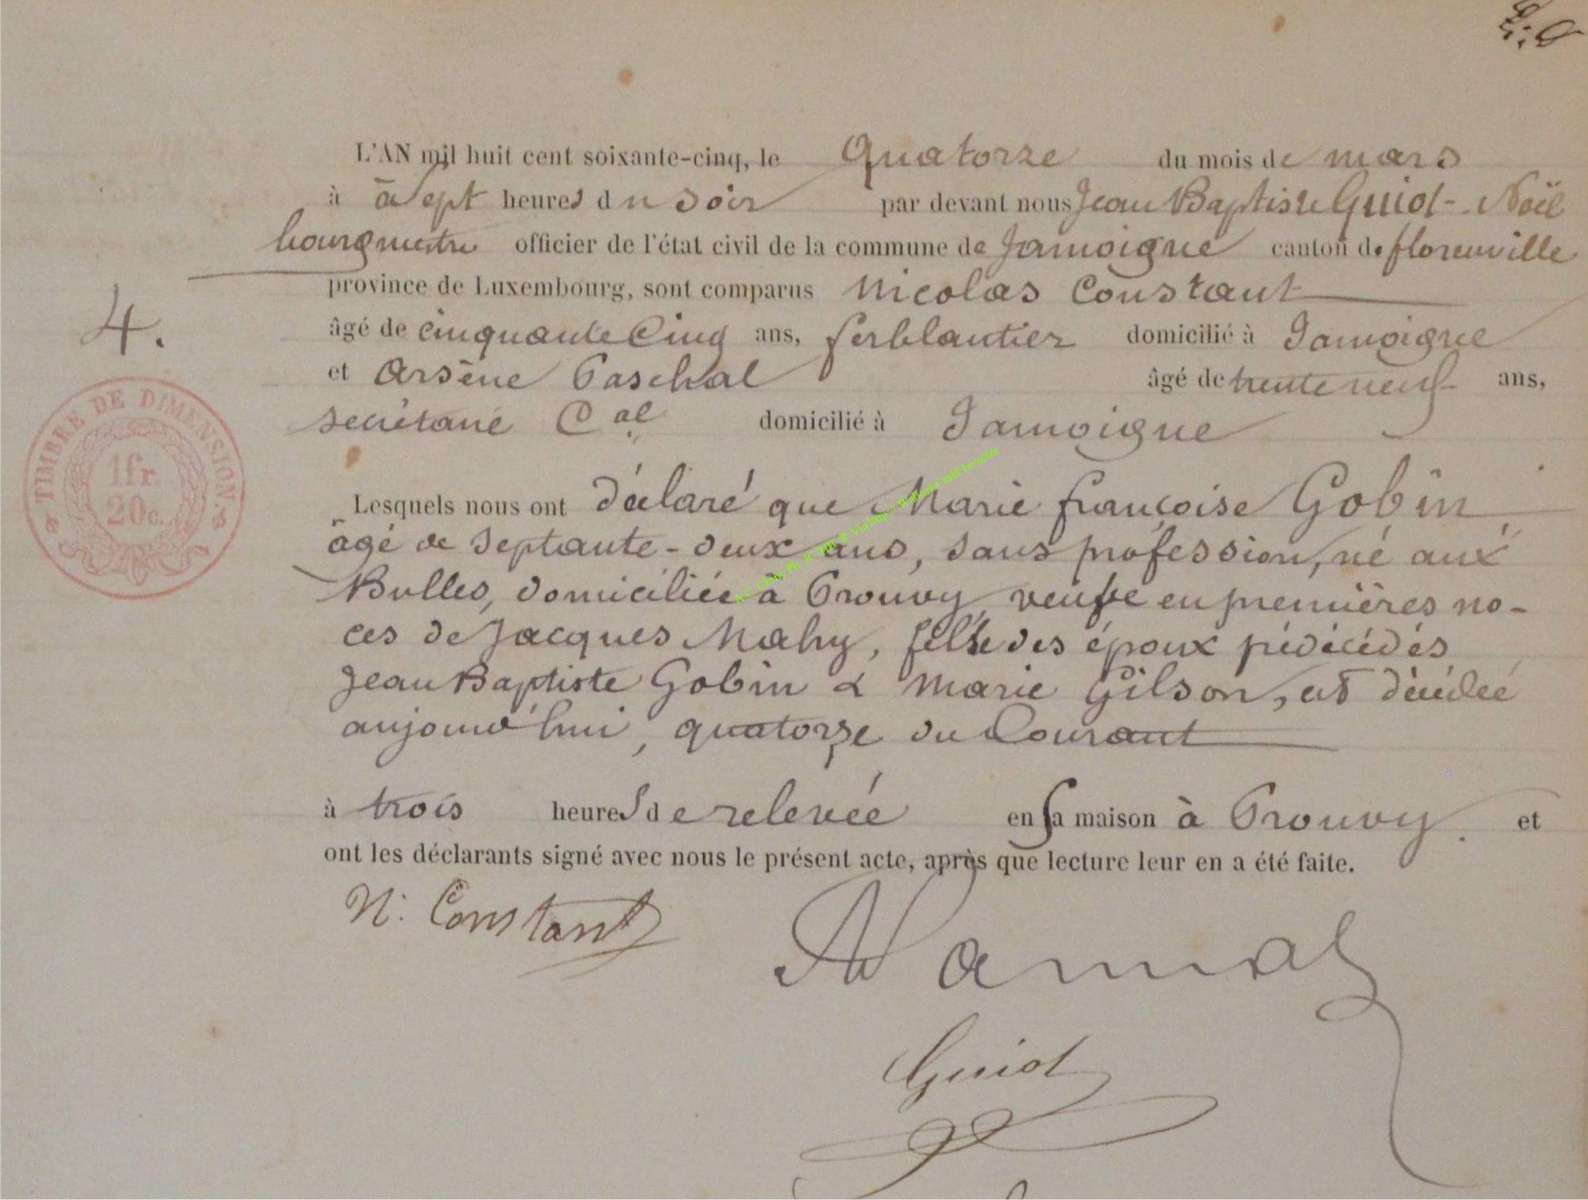 L'AN mil huit cent soixante-cinq, le Quatorze du mois de mars
à à Sept heures du soir par devant nous Jean Baptiste Guiot-Noël
bourgmestre officier de l'état civil de la commune de Jamoigne canton de florenville
province de Luxembourg, sont comparus Nicolas Constant
4.
âgé de cinquante Cinq ans, ferblantier domicilié à Jamoigne
et Arsène Paschal âgé de trente neuf ans,
secrétaire Cal domicilié à Jamoigne
TIMBRE DE DIMENSION.
1fr.
20c.
Lesquels nous ont déclaré que Marie françoise Gobin
âgé de Septante-deux ans, sans profession, né aux
Bulles, domiciliée à Prouvy, veufve en premières no-
ces de Jacques Mahy, fille des époux prédécédés
Jean Baptiste Gobin & Marie Gilson, est décédée
aujourd'hui, quatorze du Courant
à trois heures de relevée en sa maison à Prouvy. et
ont les déclarants signé avec nous le présent acte, après que lecture leur en a été faite.
N. Constant
Guiot